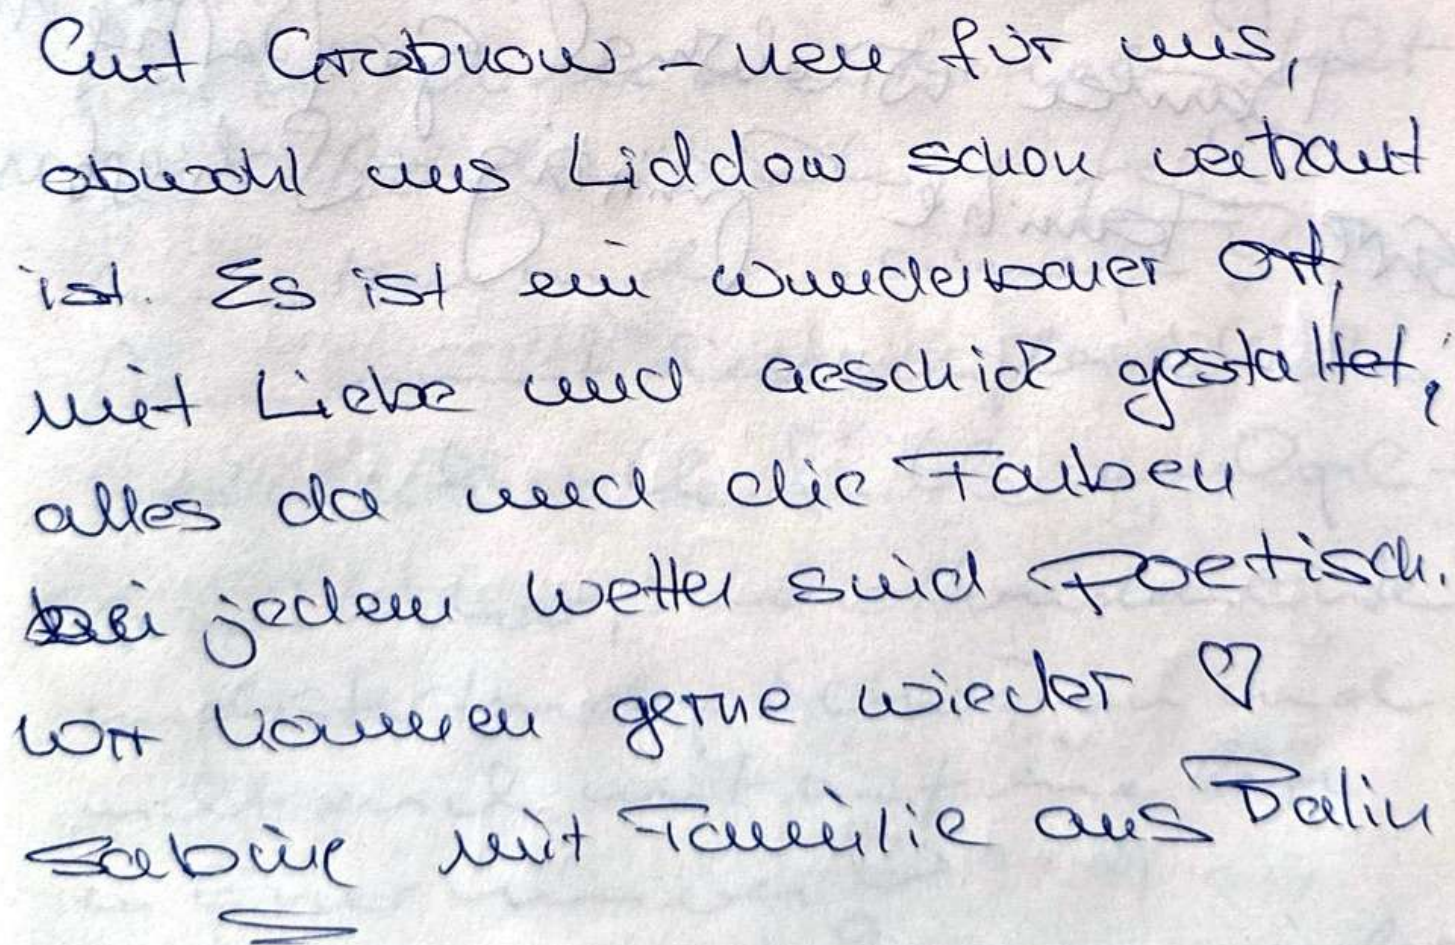 Gut Grabnow - neu für uns,
obwohl uns Liddow schon vertraut
ist. Es ist ein wunderbarer Ort,
mit Liebe und Geschick gestaltet,
alles da und die Farben
bei jedem Wetter sind poetisch.
Wir kommen gerne wieder ♡
Sabine mit Familie aus Berlin